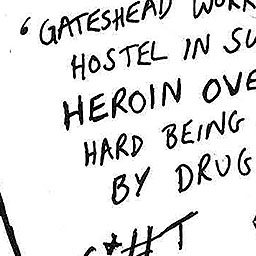 'GATESHEAD
HOSTEL IN
HEROIN
HARD BEING
BY DRUG